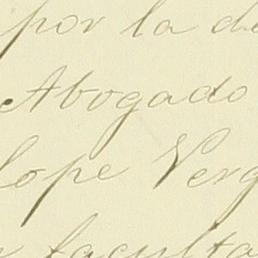 por la de
Abogado
lope Verg
faculta